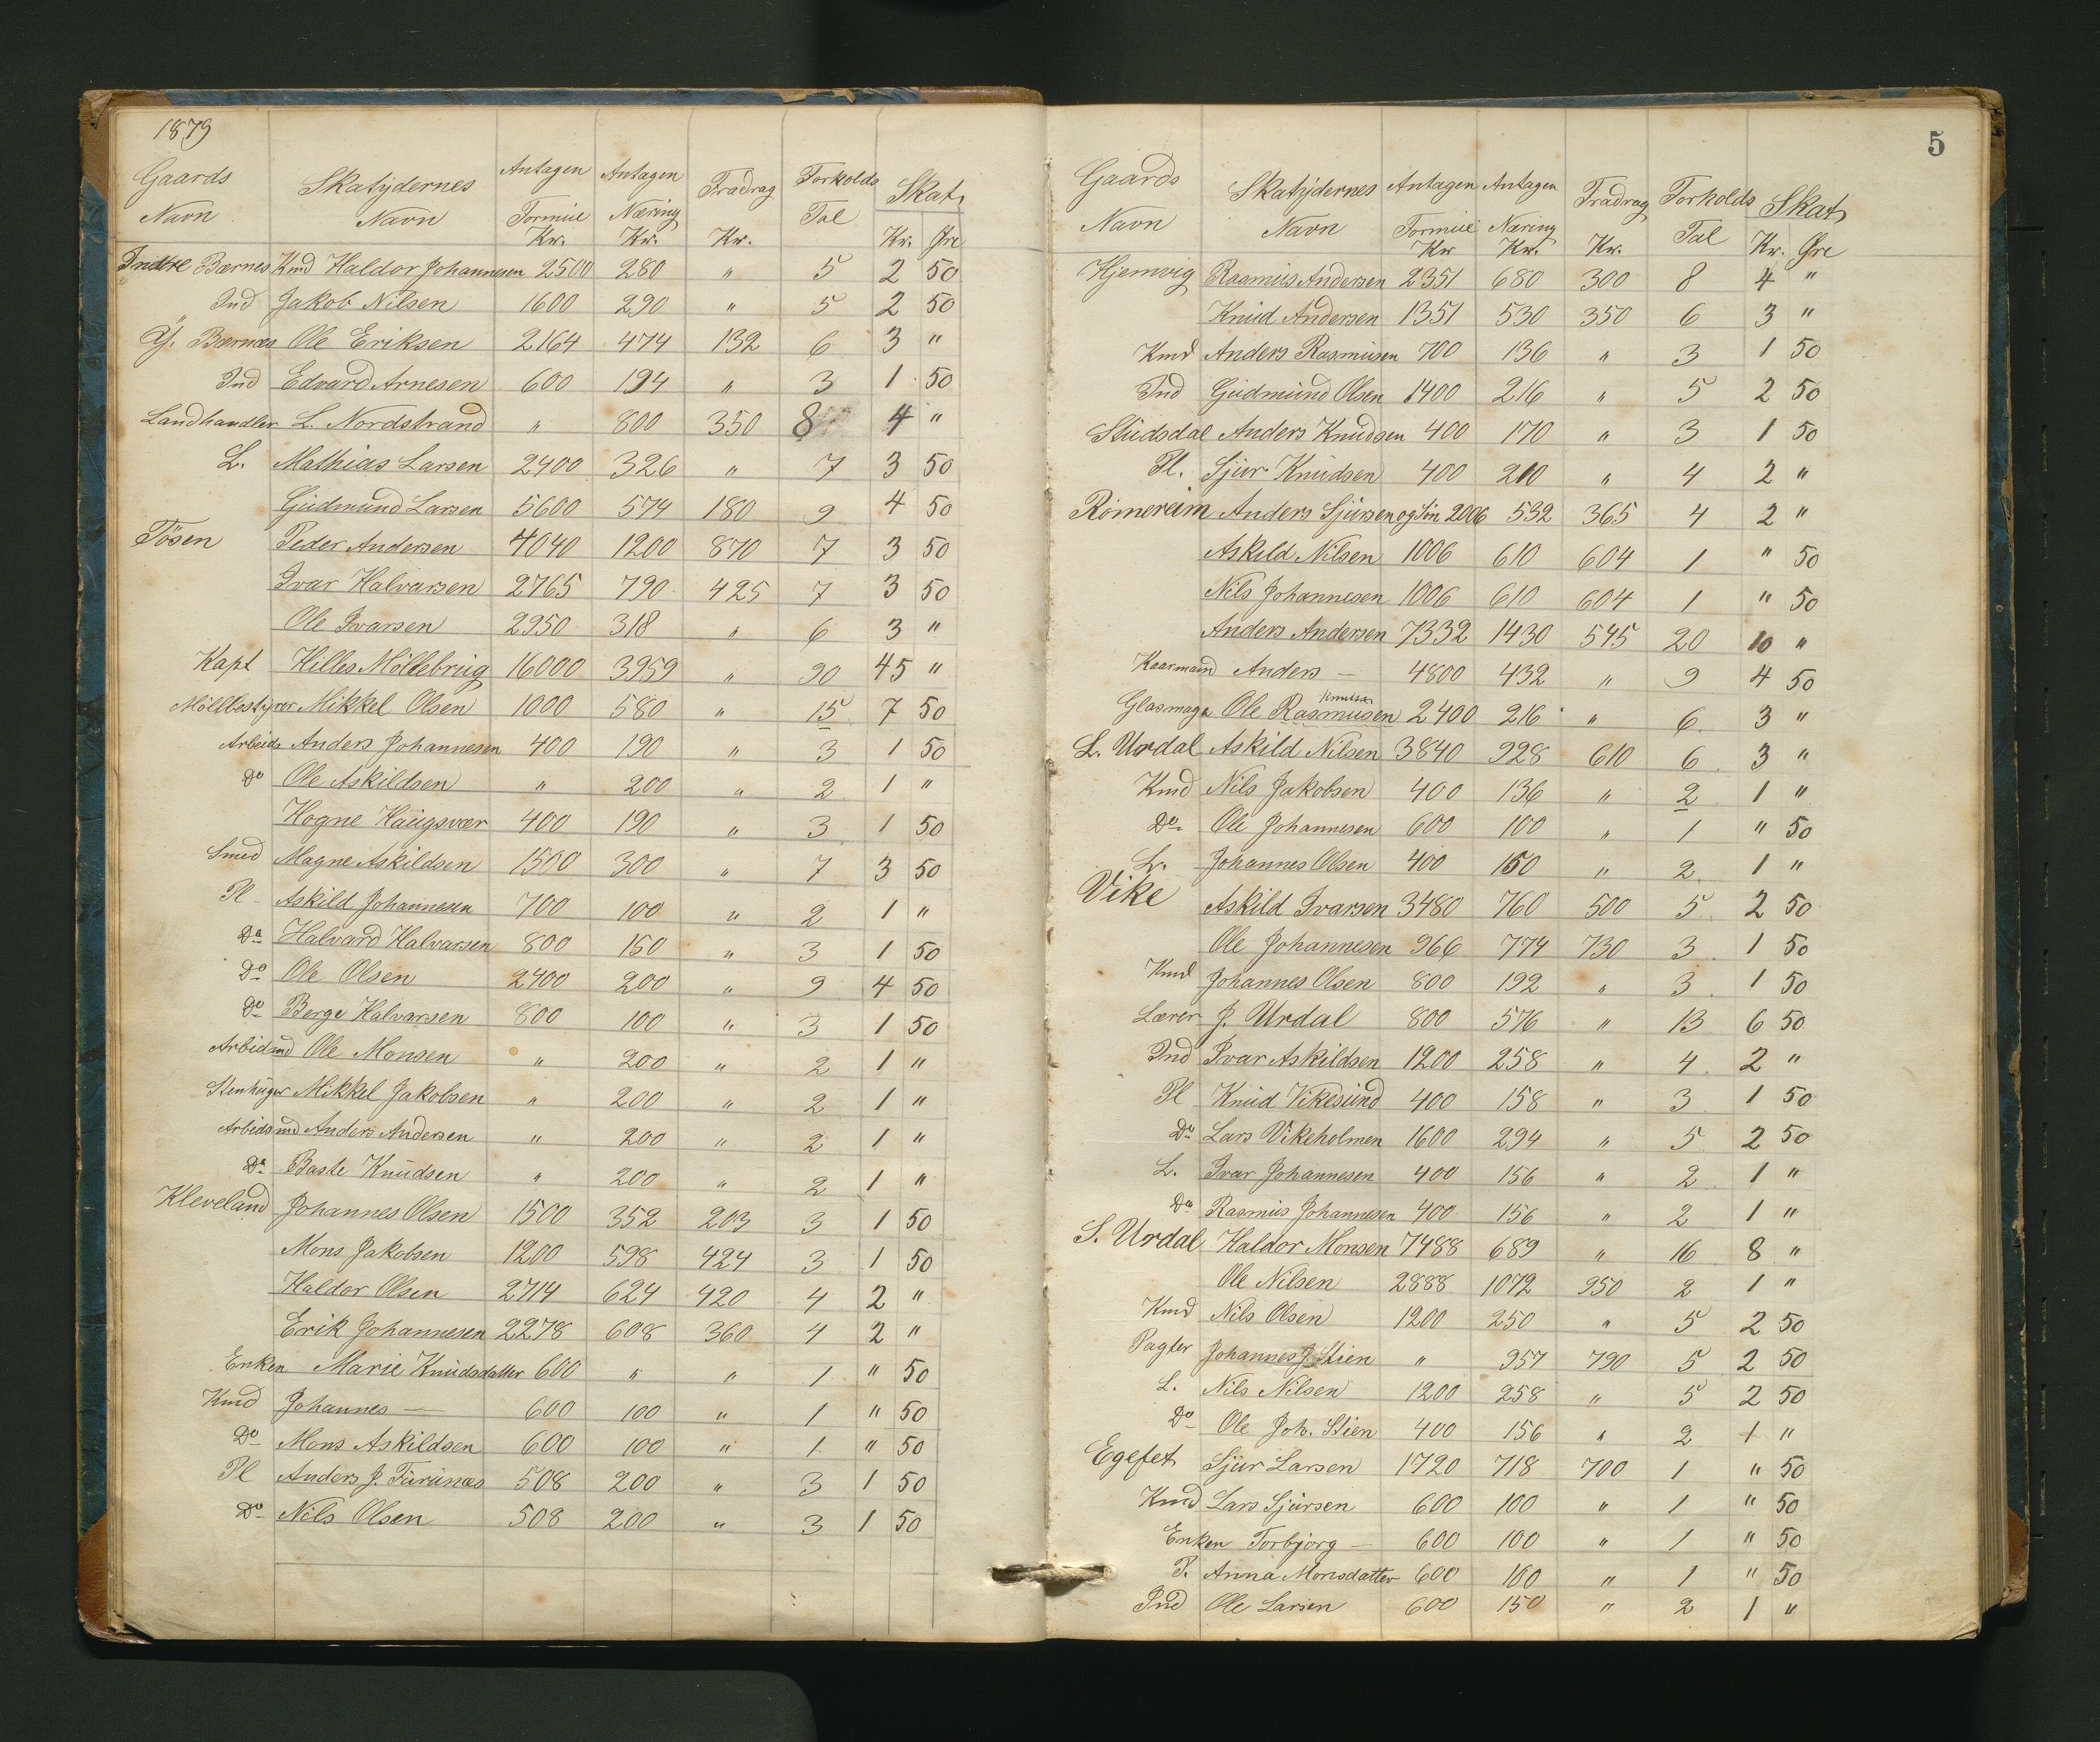 1879
Gaards Navn Skatydernes Navn Antagen Formue Kr. Antagen Næring Kr. Fradrag Kr. Forholds Tal Skat. Kr. Øre
Indre Bærnes Kmd Haldor Johannesen 2500 280 " 5 2 50
Ind Jakob Nilsen 1600 290 " 5 2 50
Y. Bærnæs Ole Eriksen 2164 474 132 6 3 "
Ind Edvard Arnesen 600 194 " 3 1 50
Landhandler L. Nordstrand " 800 350 8 4 "
L. Mathias Larsen 2400 326 " 7 3 50
Gudmund Larsen 5600 574 180 9 4 50
Tösen Peder Andersen 4040 1200 870 7 3 50
Ivar Halvarsen 2765 790 425 7 3 50
Ole Ivarsen 2950 318 " 6 3 "
Kapt Hilles Möllebrug 16000 3959 " 90 45 "
Möllestyrer Mikkel Olsen 1000 580 " 15 7 50
Arbeids Anders Johannesen 400 190 " 3 1 50
Do Ole Askildsen " 200 " 2 1 "
Hogne Haugsvær 400 190 " 3 1 50
Smed Magne Askildsen 1500 300 " 7 3 50
Pl Askild Johannesen 700 100 " 2 1 "
Do Halvard Halvarsen 800 150 " 3 1 50
Do Ole Olsen 2400 200 " 9 4 50
Do Berge Halvarsen 800 100 " 3 1 50
Arbidmd Ole Monsen " 200 " 2 1 "
Stenhuger Mikkel Jakobsen " 200 " 2 1 "
Arbidsmd Anders Andersen " 200 " 2 1 "
Do Baste Knudsen " 200 " 2 1 "
Kleveland Johannes Olsen 1500 352 203 3 1 50
Mons Jakobsen 1200 598 424 3 1 50
Haldor Olsen 2714 624 420 4 2 "
Erik Johannesen 2278 608 360 4 2 "
Enken Marie Knudsdatter 600 " " 1 " 50
Kmd Johannes — 600 100 " 1 " 50
Do Mons Askildsen 600 100 " 1 " 50
Pl Anders J. Furunæs 508 200 " 3 1 50
Do Nils Olsen 508 200 " 3 1 50
5
Gaards Navn Skatydernes Navn Antagen Formue Kr Antagen Næring Kr. Fradrag Kr. Forholds Tal Skat Kr. Øre
Hjemvig Rasmus Andersen 2351 680 300 8 4 "
Knud Andersen 1351 530 350 6 3 "
Kmd Anders Rasmusen 700 136 " 3 1 50
Ind Gudmund Olsen 1400 216 " 5 2 50
Studsdal Anders Knudsen 400 170 " 3 1 50
Pl. Sjur Knudsen 400 210 " 4 2 "
Romereim Anders Sjursen og Sön 2006 532 365 4 2 "
Askild Nilsen 1006 610 604 1 " 50
Nils Johannesen 1006 610 604 1 " 50
Anders Andersen 7332 1430 545 20 10 "
Kaarmand Anders — 4800 432 " 9 4 50
Knutsen
Glasmaga Ole Rasmusen 2400 216 " 6 3 "
L. Urdal Askild Nilsen 3840 928 610 6 3 "
Kmd Nils Jakobsen 400 136 " 2 1 "
Do. Ole Johannesen 600 100 " 1 " 50
L. Johannes Olsen 400 150 " 2 1 "
Vike Askild Ivarsen 3480 760 500 5 2 50
Ole Johannesen 966 774 730 3 1 50
Kmd Johannes Olsen 800 192 " 3 1 50
Lærer J. Urdal 800 576 " 13 6 50
Ind Ivar Askildsen 1200 258 " 4 2 "
Pl Knud Vikesund 400 158 " 3 1 50
Do Lars Vikeholmen 1600 294 " 5 2 50
L. Ivar Johannesen 400 156 " 2 1 "
Do Rasmus Johannesen 400 156 " 2 1 "
S. Urdal Haldor Monsen 7488 689 " 16 8 "
Ole Nilsen 2888 1072 950 2 1 "
Kmd Nils Olsen 1200 250 " 5 2 50
Pagter Johannes J. Stien " 957 790 5 2 50
L. Nils Nilsen 1200 258 " 5 2 50
Do Ole Joh. Stien 400 156 " 2 1 "
Egefet Sjur Larsen 1720 718 700 1 " 50
Kmd Lars Sjursen 600 100 " 1 " 50
Enken Torbjorg — 600 100 " 1 " 50
P. Anna Monsdatter 600 100 " 1 " 50
Ind Ole Larsen 600 150 " 2 1 "